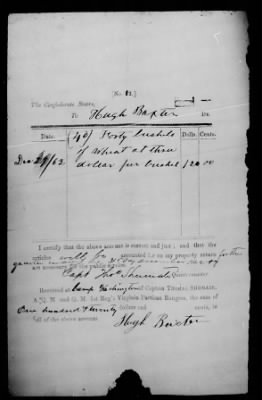 [No. 22.]
The Confederate States,
To Hugh Baxter Dr.
Date. Dolls. Cents.
Dec 29/62 (40) Forty bushels
of wheat at three
dollar per bushel 120 00
I certify that the above account is correct and just; and that the
articles will be accounted for on my property return for the
quarter
are necessary for the public
Capt Thos Quartermaster
Received at Camp Washington of Captain Thomas
A. Q. M. 1st Reg't Virginia Partisan Rangers, the sum of
One hundred & twenty dollars and cents, in
full of the above account.
Hugh Baxter